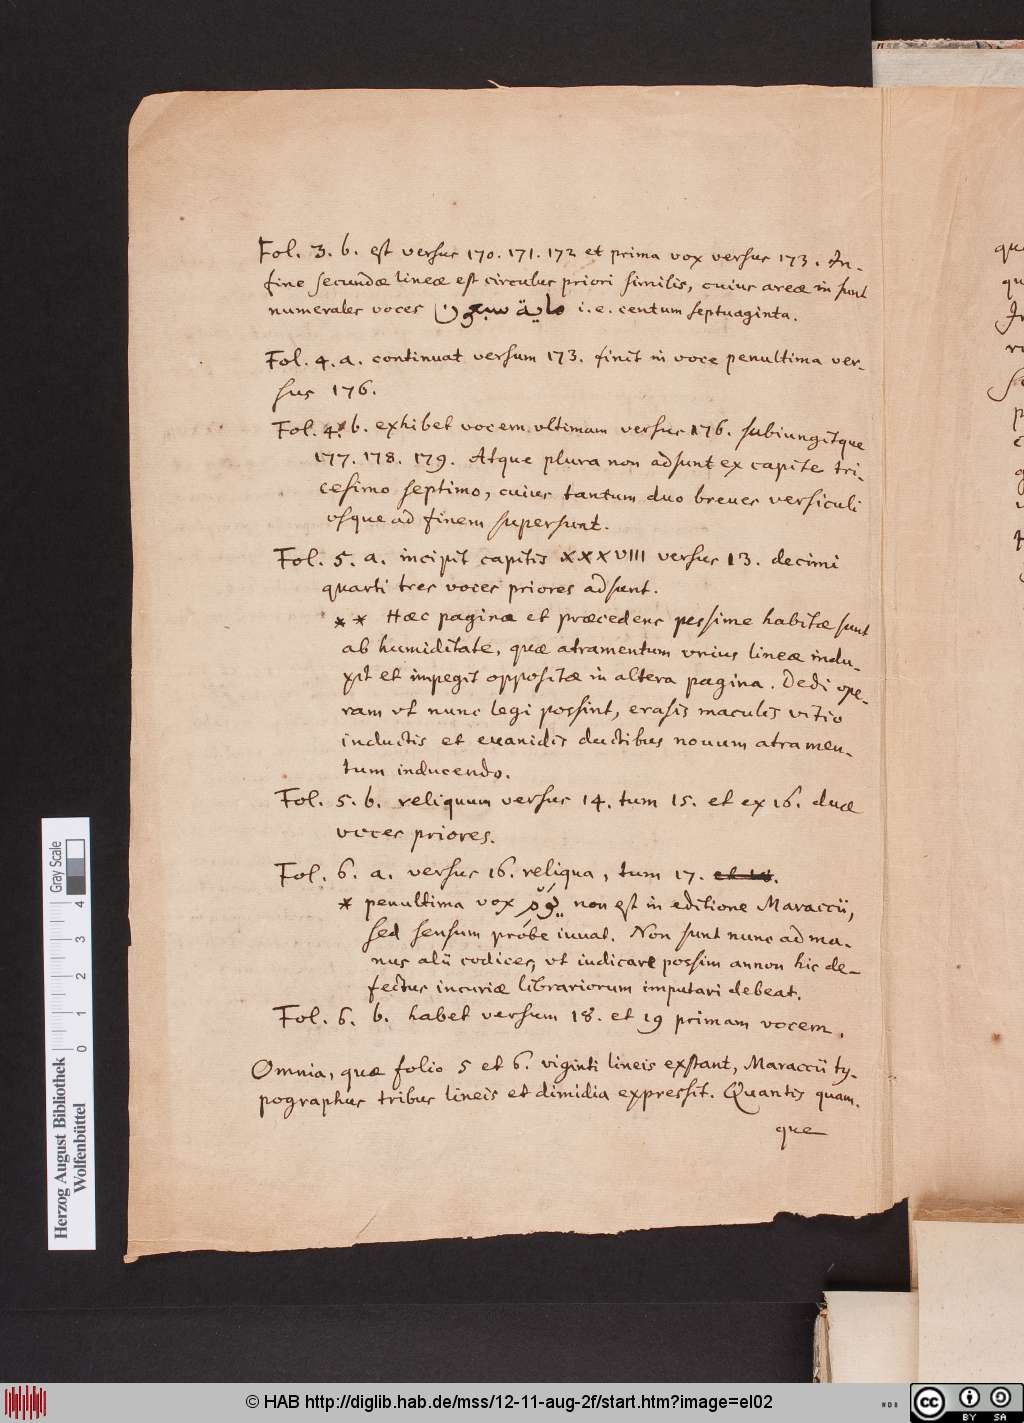 Fol. 3. b. est versus 170. 171. 172 et prima vox versus 173. In-
fine secundæ lineæ est circulus priori similis, cuius areæ in sunt
numerales voces مایة سبعون i. e. centum septuaginta.
Fol. 4. a. continuat versum 173. finit in voce penultima ver-
sus 176.
Fol. 4. b. exhibet vocem ultimam versus 176. subiungitque
177. 178. 179. Atque plura non adsunt ex capite tri-
cesimo septimo, cuius tantum duo breues versiculi
vsque ad finem supersunt.
Fol. 5. a. incipit capitis XXXVIII versus 13. decimi
quarti tres voces priores adsunt.
** Hæc pagina et præcedens pessime habitæ sunt
ab humiditate, quæ atramentum vnius lineæ indu-
xit et impegit oppositæ in altera pagina. Dedi ope-
ram vt nunc legi possint, erasis maculis vitio
inductis et euanidis ductibus nouum atramen-
tum inducendo.
Fol. 5. b. reliquum versus 14. tum 15. et ex 16. duæ
voces priores.
Fol. 6. a. versus 16. reliqua, tum 17. et 18.
* penultima vox non est in editione Maraccii,
sed sensum probe iuuat. Non sunt nunc ad ma-
nus alii codices, vt iudicare possim annon hic de-
fectus incuriæ librariorum imputari debeat.
Fol. 6. b. habet versum 18. et 19 primam vocem.
Omnia, quæ folio 5 et 6. viginti lineis exstant, Maraccii ty-
pographus tribus lineis et dimidia expressit. Quantis quam-
que
qu
qu
Herzog August Bibliothek
Wolfenbüttel
Gray Scale
0 1 2 3 4
© HAB http://diglib.hab.de/mss/12-11-aug-2f/start.htm?image=el02
cc BY SA